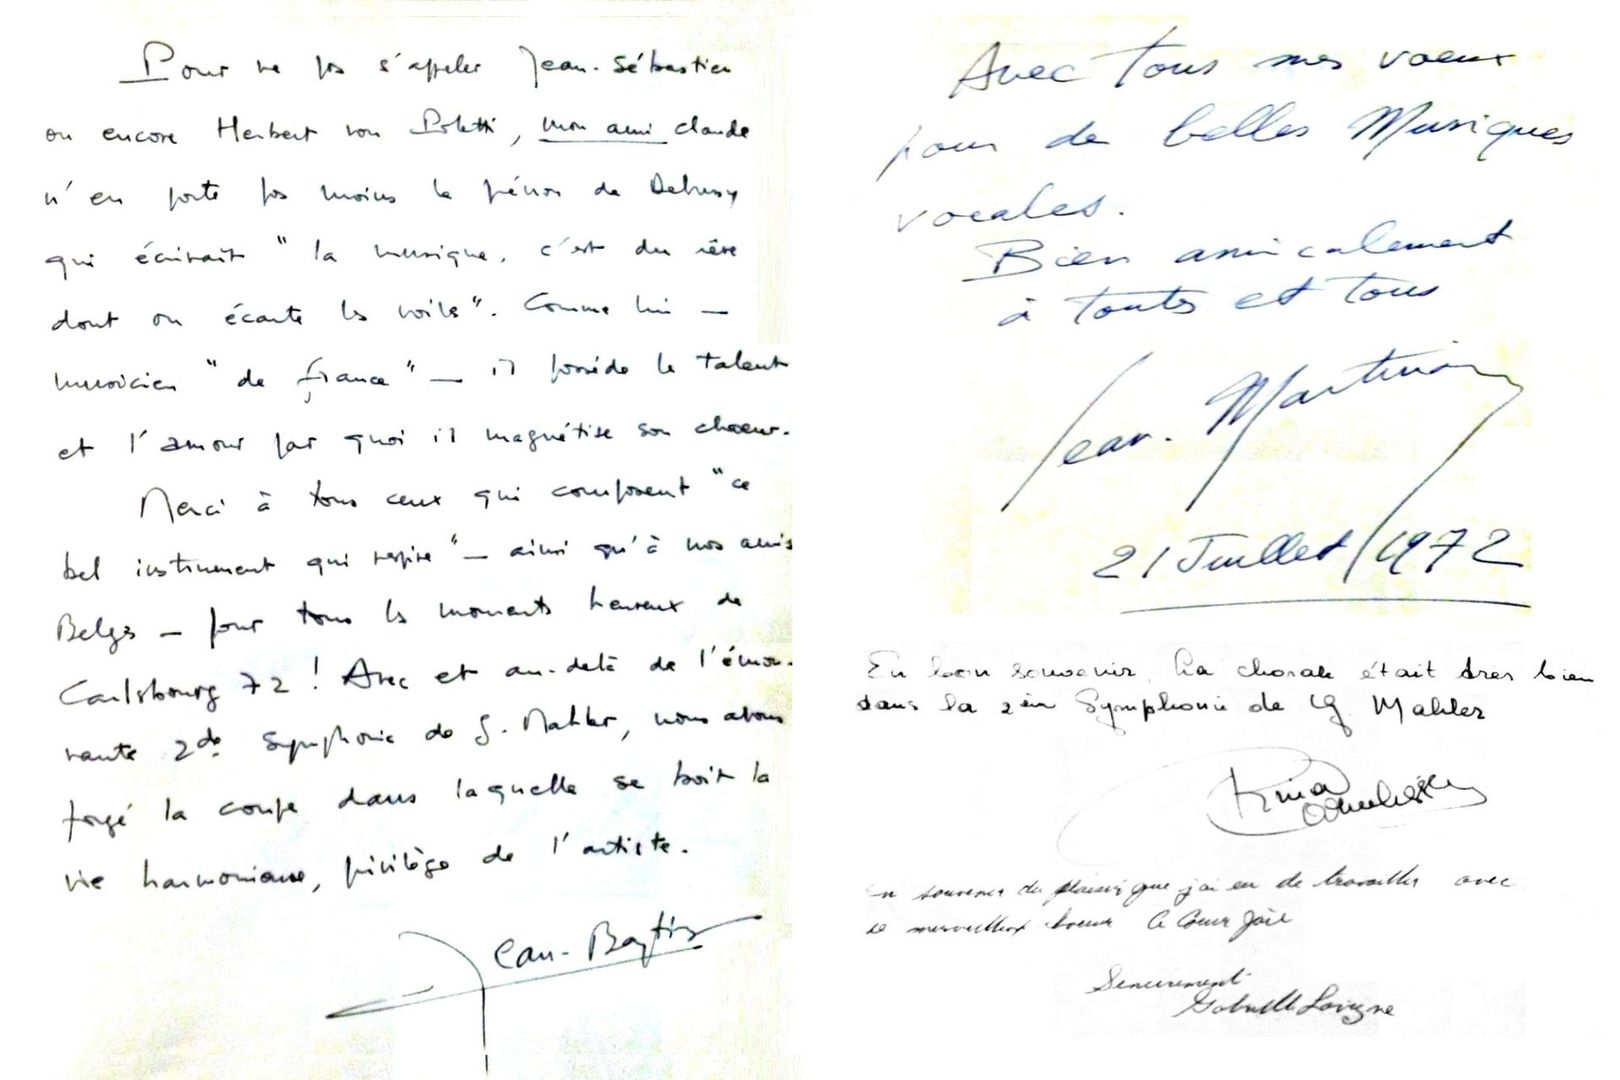 Pour ne pas s'appeler Jean-Sébastien
ou encore Herbert von Poletti, mon ami claude
n'en porte pas moins le prénom de Debussy
qui écrivait "la musique, c'est du rêve
dont on écarte les voiles". Comme lui —
musicien "de france" — il possède le talent
et l'amour par quoi il magnétise son choeur.
Merci à tous ceux qui composent "ce
bel instrument qui respire" — ainsi qu'à nos amis
Belges — pour tous les moments heureux de
Carlsbourg 72 ! Avec et au-delà de l'émou-
vante 2de Symphonie de G. Mahler, nous avons
forgé la coupe dans laquelle se boit la
vie harmonieuse, privilège de l'artiste.
Jean-Baptiste
Avec tous mes voeux
pour de belles Musiques
vocales.
Bien amicalement
à toutes et tous
Jean Martinon
21 Juillet/1972
En bon souvenir. La chorale était très bien
dans la 2èm Symphonie de G Mahler
En souvenir du plaisir que j'ai eu de travailler avec
ce merveilleux choeur A Coeur Joie
Sincèrement
Gabrielle Lavigne